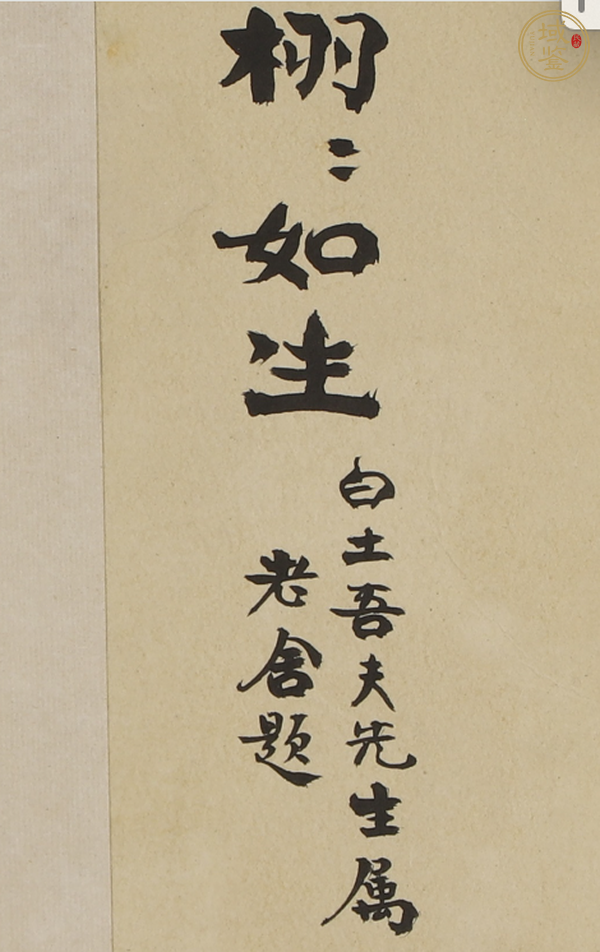 栩〻如生
白土吾夫先生属
老舍题
域鉴